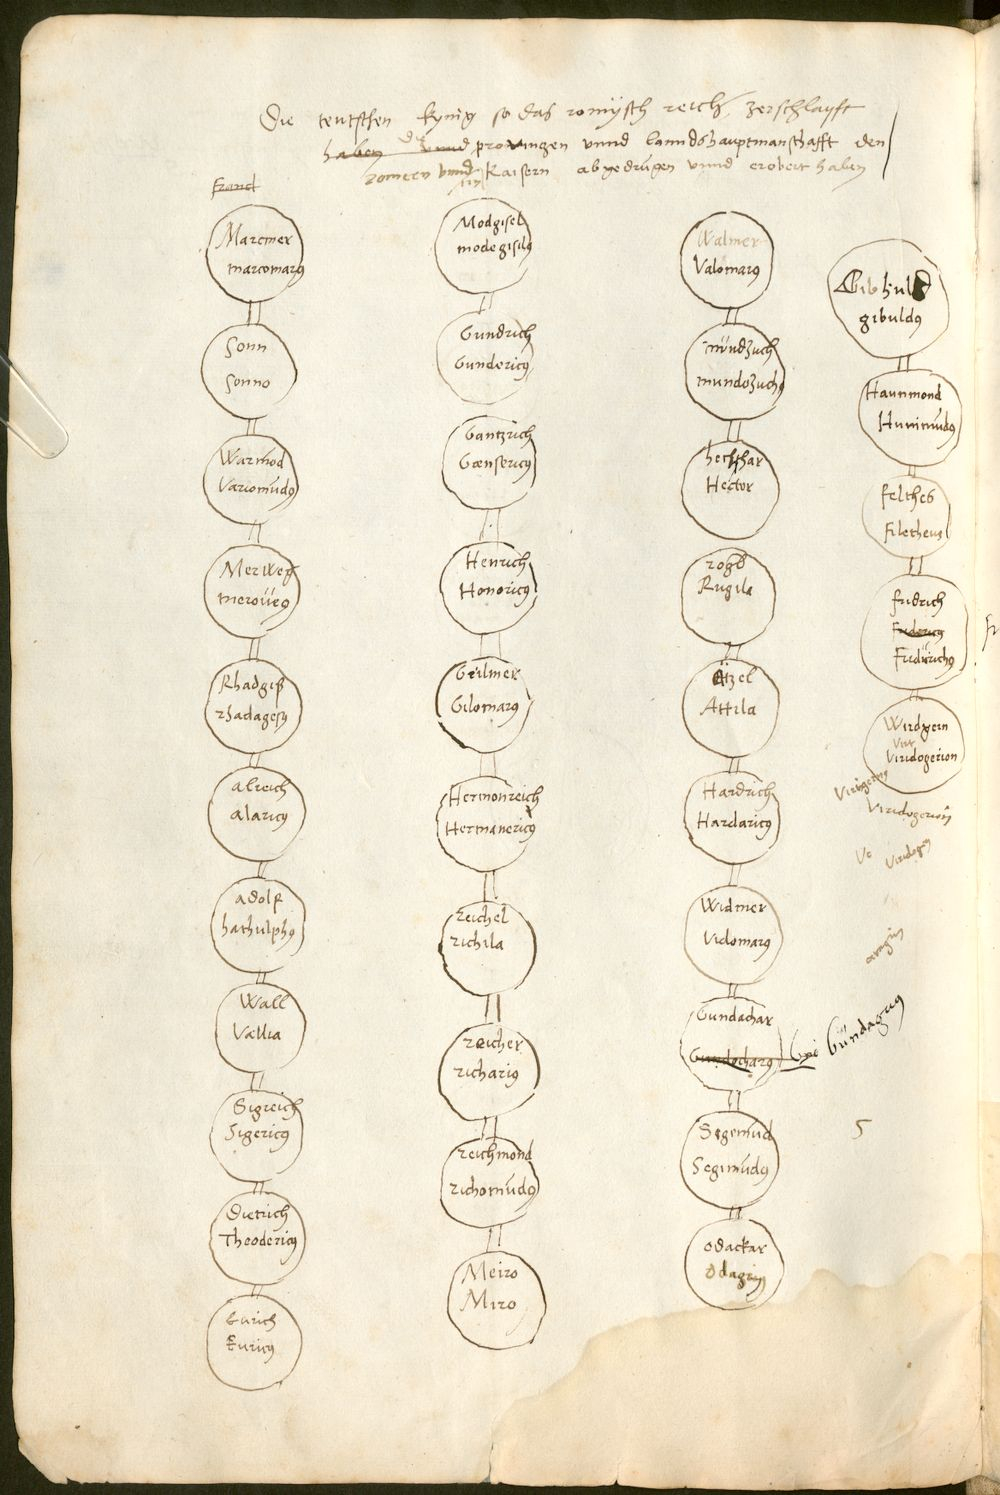 Die teutschen kynig so das romysch reich zerschlayft
haben die unnd provinzen unnd lanndshauptmanschafft den
romern unnd irn kaisern abgedrugen unnd erobert haben
franck
Marcmer
marcomarꝰ
Sonn
Sonno
Warmod
Variomūdꝰ
Merweg
meroveꝰ
Rhadgiß
rhadagesꝰ
alreich
alaricꝰ
adolf
hathulphꝰ
Wall
Vallia
Sigreich
Sigericꝰ
Dietrich
Theodericꝰ
Eurich
Euricꝰ
Modgisel
modegisilꝰ
Gundrich
Gundericꝰ
Gantzrich
Gensericꝰ
Henrich
Honoricꝰ
Geilmer
Gilomarꝰ
Hermonreich
Hermanericꝰ
reichel
richila
reicher
richariꝰ
reichmond
richomūdꝰ
Meiro
Miro
Walmer
Valomarꝰ
mundzuch
mundozuchꝰ
hechthar
Hector
Rugila
Atzel
Attila
Hardrich
Hardaricꝰ
Widmer
Vidomarꝰ
Gundachar
Gundocharꝰ
Gūndagrꝰ
Segemūd
Segimūdꝰ
odackar
odagrꝰ
Gibhuld
gibuldꝰ
Haunmond
Hunimūdꝰ
felthes
filetheus
fridrich
Fridericꝰ
Fridrichꝰ
Wirdgern
Vir
Viridogerion
Viridogerion
Ve
5